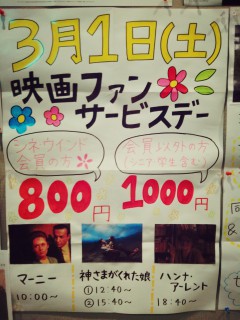 3月1日(土)
映画ファン
サービスデー
シネウインド
会員の方
800円
会員以外の方
(シニア 学生含む)
1000円
マーニー
10:00〜
神さまがくれた娘
①12:40〜
②15:40〜
ハンナ・
アーレント
18:40〜